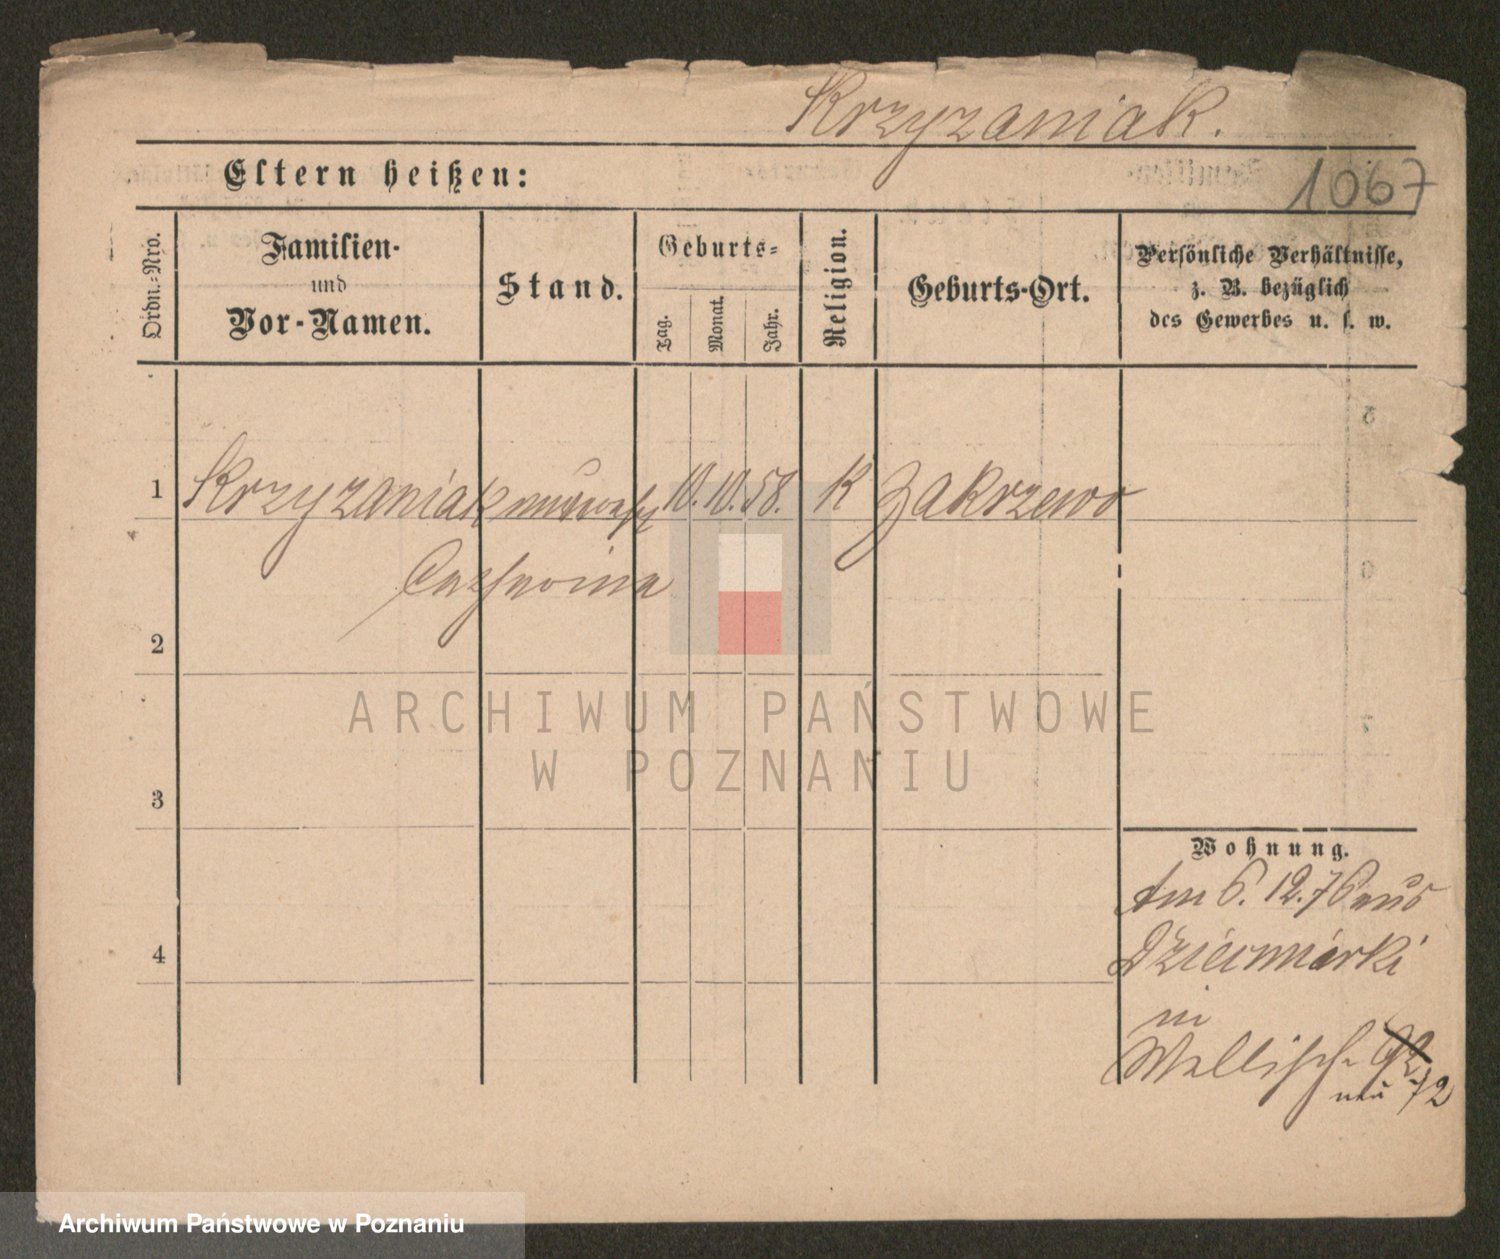 Krzyzaniak.
Eltern heißen:
1067
Ordn.-Nro.
Familien-
und
Vor-Namen.
Stand.
Geburts-
Tag.
Monat.
Jahr.
Religion.
Geburts-Ort.
Persönliche Verhältnisse,
z. B. bezüglich
des Gewerbes u. s. w.
1 Krzyzaniak 10. 10. 58. K Zakrzewo
2
3
4
Wohnung.
Am 6. 12. 76 aus
in
Wallisch. 92
neu 72
ARCHIWUM PAŃSTWOWE
W POZNANIU
Archiwum Państwowe w Poznaniu